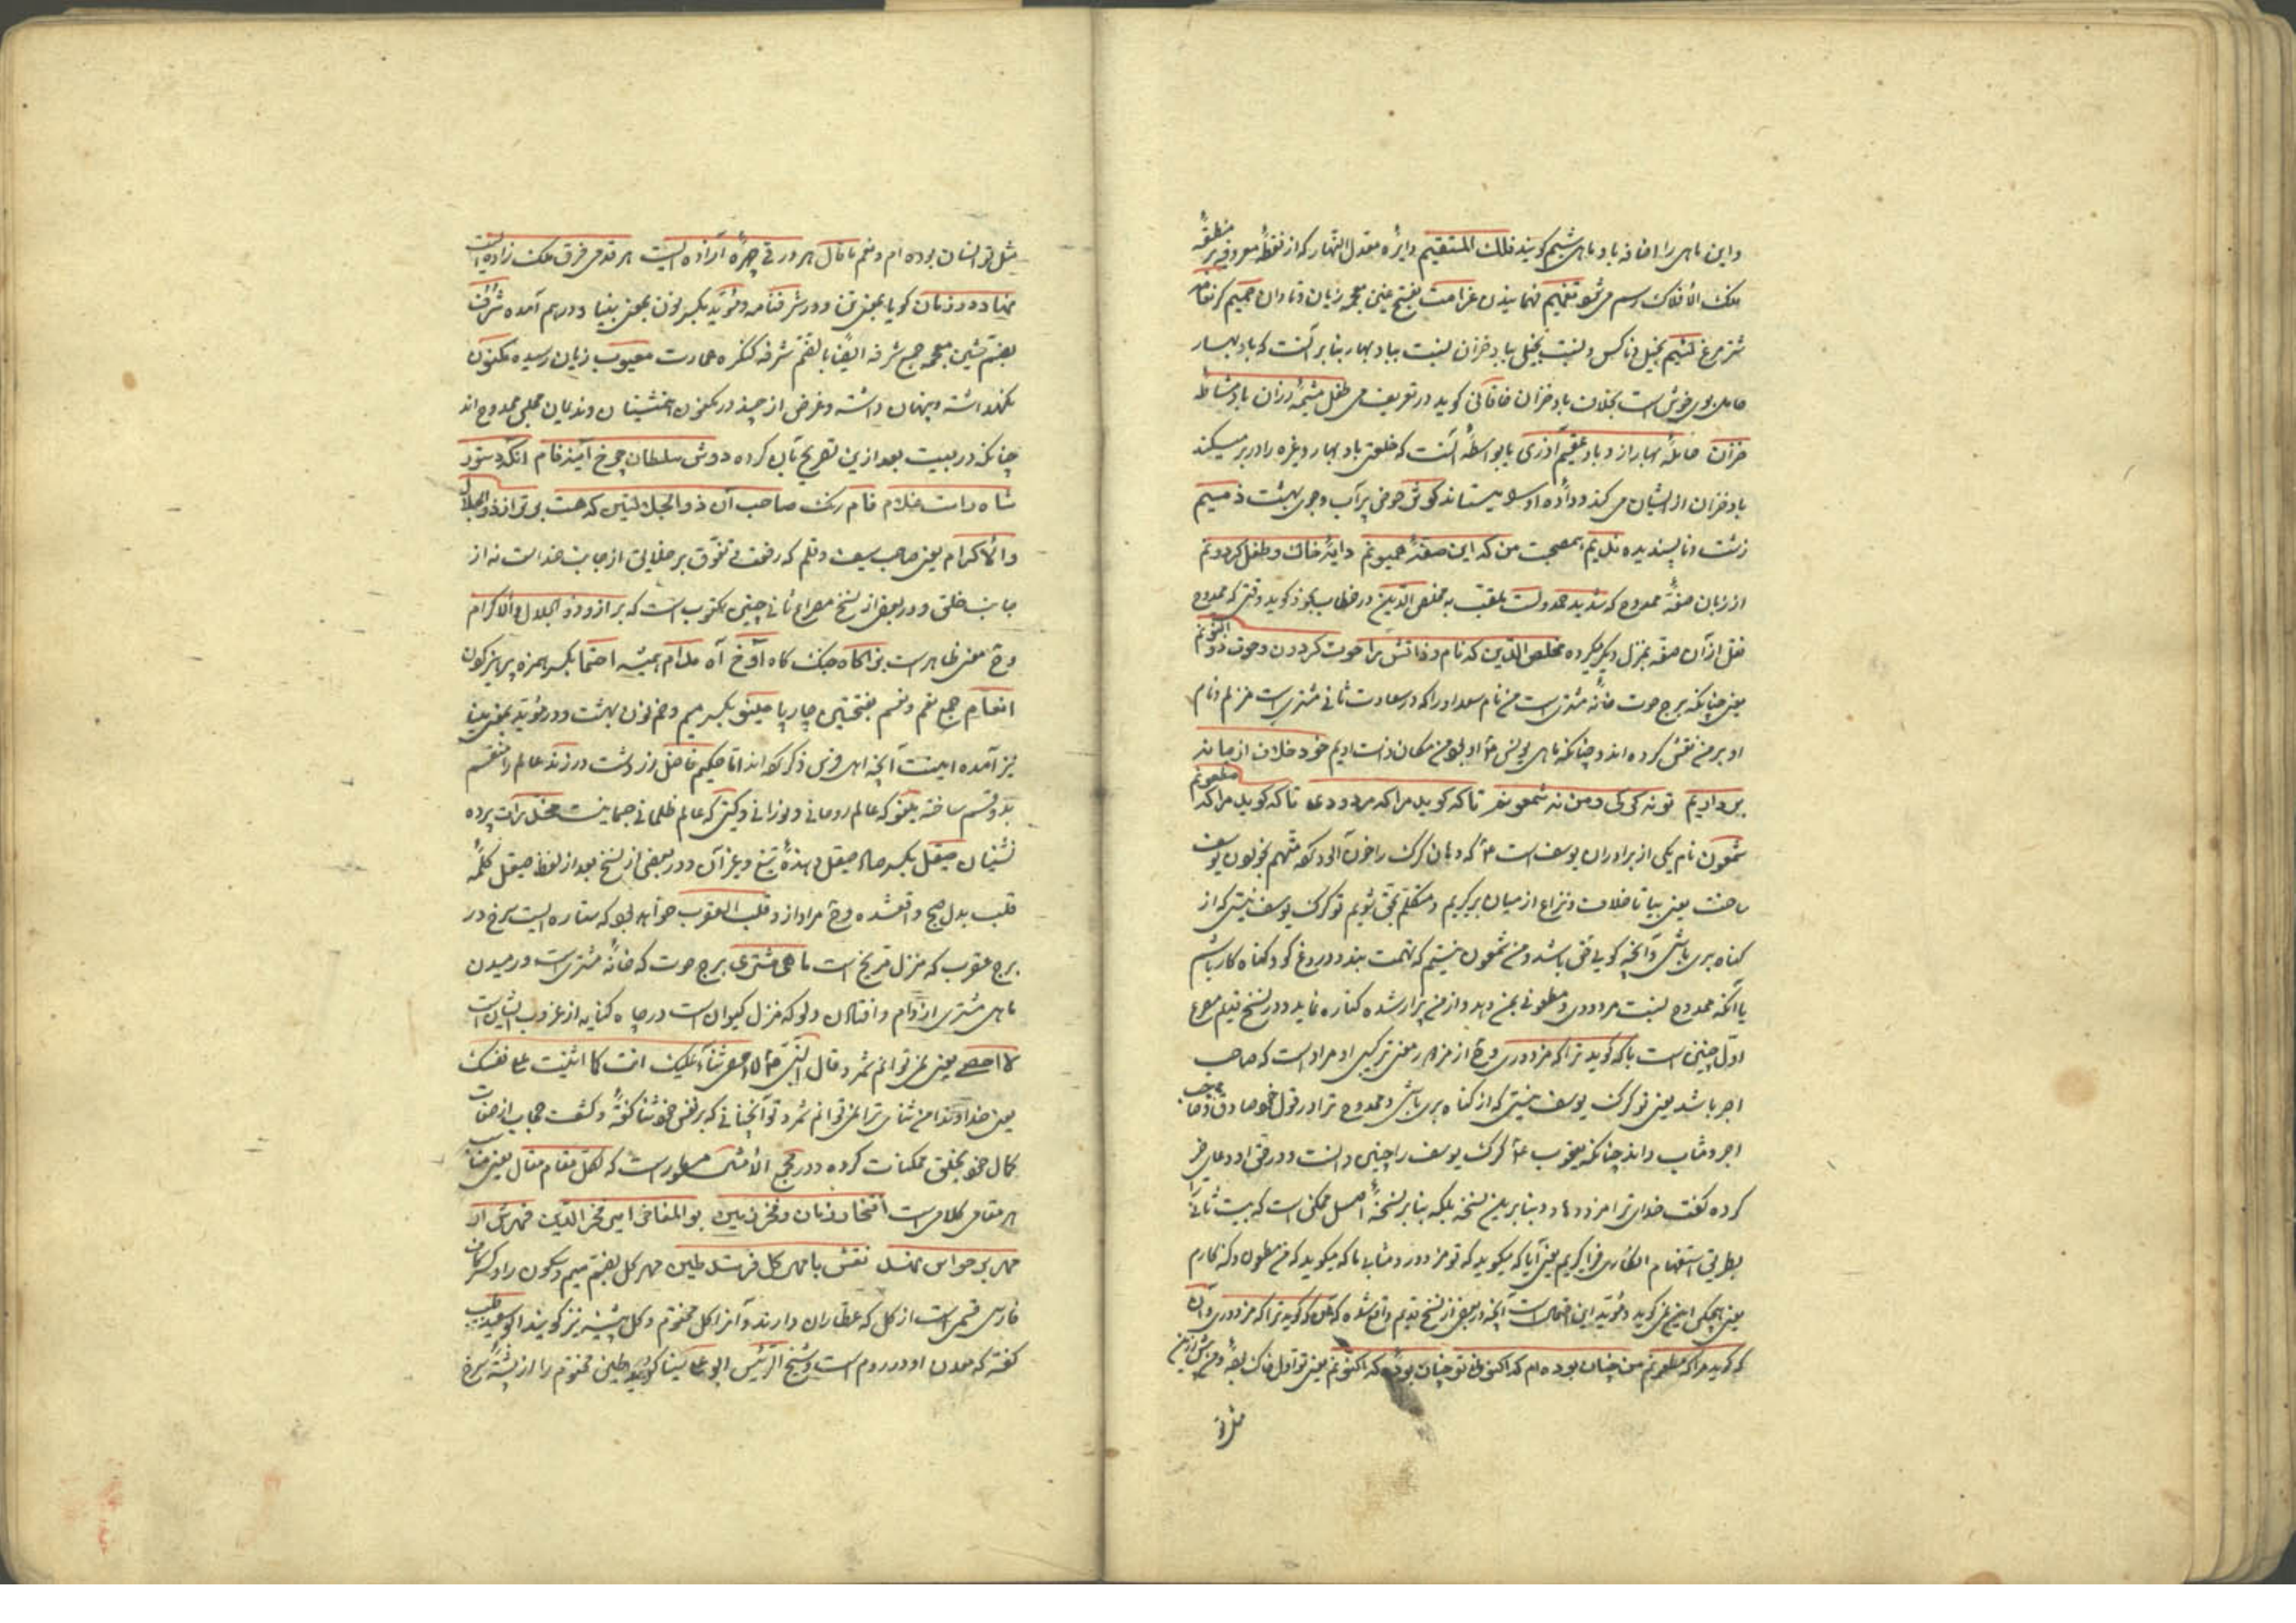 واین ماهی را اضافه باد و ماهی شیم کویند فلك المستقیم دایرۀ معدل النهار که از نقطۀ معروفه بر منطقۀ
فلک الأفلاک رسم می شود تفهیم فهمانیدن غرامت بفتح غین معجمه زیان و تاوان
شتر مرغ لئیم بخیل و ناکس و نسبت بخیلی بباد خزان نسبت بباد بهار بنابر آنست که باد بهار
حامل بوی خوش است بخلاف باد خزان خاقانی کوید در تعریف می طفل مشیمۀ رزان باد مشاطۀ
خزان حاملۀ بهار از و باد عقیم آذری یا بواسطۀ آنست که خلعتی باد بهار وغیره را در بر میکند
باد خزان از ایشان می کند و دادۀ او میستاند کوش حوض پر آب و جوی بهشت ذمیم
زشت و ناپسندیده ندیم همصحبت من که این صفۀ همیونم دایۀ خاك و طفل کردونم
از زبان صفۀ ممدوح که سدید حمدوست ملقب به مخلص الدین در خطاب کوید وقتی که ممدوح
نقل از آن صفه بمنزل دیکر میکرده مخلص الدین که نام و ذاتش را حوت کردون و حوت ذو النونم
یعنی چنانکه برج حوت خانۀ مشتری است من نام سعد اورا که در سعادت ثانی مشتری است منزلم و نام
او بر من نقش کرده اند و چنانکه ماهی یونس مکان ذات اویم خود خلاف از میانه
بر داریم تو نه کرکی و من نه شمعونم تا که کوید مرا که مردودی تا که کوید مرا که مطعونم
شمعون نام یکی از برادران یوسف است که دهان کرک را خون آلود کرد متهم بخون یوسف
ساخت یعنی بیا تا خلاف و نزاع از میان بر کیریم و متکلم بحق شویم تو کرک یوسف نیستی که از
کناه بری باشی و آنچه کویی حق باشد و من شمعون نیستم که تهمت بندد و دروغ کو و کناه کار باشم
یا آنکه ممدوح نسبت مردودی و مطعونی بمن دهد و از من بیزار شده کناره نماید و در نسخ قدیم مصرع
اول چنین است با که کوید ترا که مزدوری از مزدور معنی ترکیبی او مراد است که صاحب
اجر باشد یعنی تو کرک یوسف نیستی که از کناه بری باشی و ممدوح ترا در قول خود صادق و صاحب
اجر و مثاب داند چنانکه یعقوب کرک یوسف را چنین دانست و در حق او دعای خیر
کرده کفت خدای ترا مزد دهاد و بنا برین نسخه بلکه بنا بر نسخۀ اصل ممکن است که بیت ثانی
بطریق استفهام انکاری فرا کیریم یعنی آیا که میکوید که تو مزدور و مثابی یا که میکوید که من مطعون و کنه کارم
یعنی هیچکس این نمی کوید و مؤید این احتمال است آنچه در بعضی از نسخ قدیم واقع شده که کوید ترا که مزدوری وآن
که کوید مرا که مطعونم من چنان بوده ام که اکنونی تو چنان بودۀ که اکنونم یعنی تو اول خاک بودۀ و من پیش ازین
مثل تو
مثل تو انسان بوده ام و منم تا قال هر ورقی چهرۀ آزاده ایست هر قدمی فرق ملک زاده ایست
بخاده و زمان کویا بمعنی و در شرفنامه و مؤید بکسر نون بمعنی بینا و در بهم آمده شرف
بضم شین معجمه جمع شرفه ایضا بالضم شرفه کنکره عمارت معیوب زیان رسیده مکنون
نکهداشته و پنهان داشته و غرض از چیز در مکنون همنشینان و ندیمان مجلس ممدوح اند
چنانکه در بیت بعد ازین تصریح بآن کرده دوش سلطان چرخ آینه فام آنکه دستور
شاه راست غلام فام رنک صاحب آن ذو الجلالتین که هست برتر از ذو الجلال
والأکرام یعنی صاحب سیف و قلم که رفعت و تفوق بر خلایق از جانب خداست نه از
جانب خلق و در بعضی از نسخ مصراع ثانی چنین مکتوب است که بر ازو ذو الجلال والاکرام
معنی ظاهر است بنا کاه چنك کاه آوخ آه مدام همیشه احتما بکسر همزه پرهیز کردن
انعام جمع نعم و نعم بفتحتین چار پا مینو بکسر میم و ضم نون بهشت و در مؤید بمعنی مینا
نیز آمده اینست آنچه اهل فرس ذکر کرده اند اما حکیم فاضل زردشت در زند عالم را منقسم
بدو قسم ساخته مینو که عالم روحانی و نورانی و کیتی که عالم ظلمانی جسمانیست مخدرات پرده
نشینان صیقل بکسر صاد صیقل دهندۀ تیغ و غیر آن و در بعضی از نسخ بعد از لفظ صیقل کلمۀ
قلب بدل صبح واقعشده مراد از و قلب العقرب خواهد بود که ستاره ایست سرخ در
برج عقرب که منزل مریخ است ماهی مشتری برج حوت که خانۀ مشتری است و رمیدن
ماهی مشتری از دام و افتادن دلو که منزل کیوان است در چاه کنایه از غروب ایشان است
لا احصے یعنی نمی توانم شمرد قال النبی لا احصی ثناء علیک انت کما اثنیت علی نفسک
یعنی خداوندا من ثنای ترا نمی توانم شمرد تو آنچنانی که بر نفس خود ثنا کفتۀ و کشف حجاب از صفات
کمال خود بخلق ممکنات کرده و در مجمع الأمثال مسطور است که لکل مقام مقال یعنی مناسب
هر مقامی کلامی است افتخار زمان و فخر زمین بو المفاخر امیر فخر الدین قهرش ار
مهر بر حواس نهد نقش با مهر کل فرستد طین مهر کل بضم میم و سکون را و کسر کاف
فارسی قسمی است از کل که عطاران دارند و آنرا کل مختوم و کل نیز کویند ابو سعید طبیب
کفته که معدن او در روم است و شیخ الرئیس ابو علی سینا کوید طین مختوم را از پشتۀ سرخ